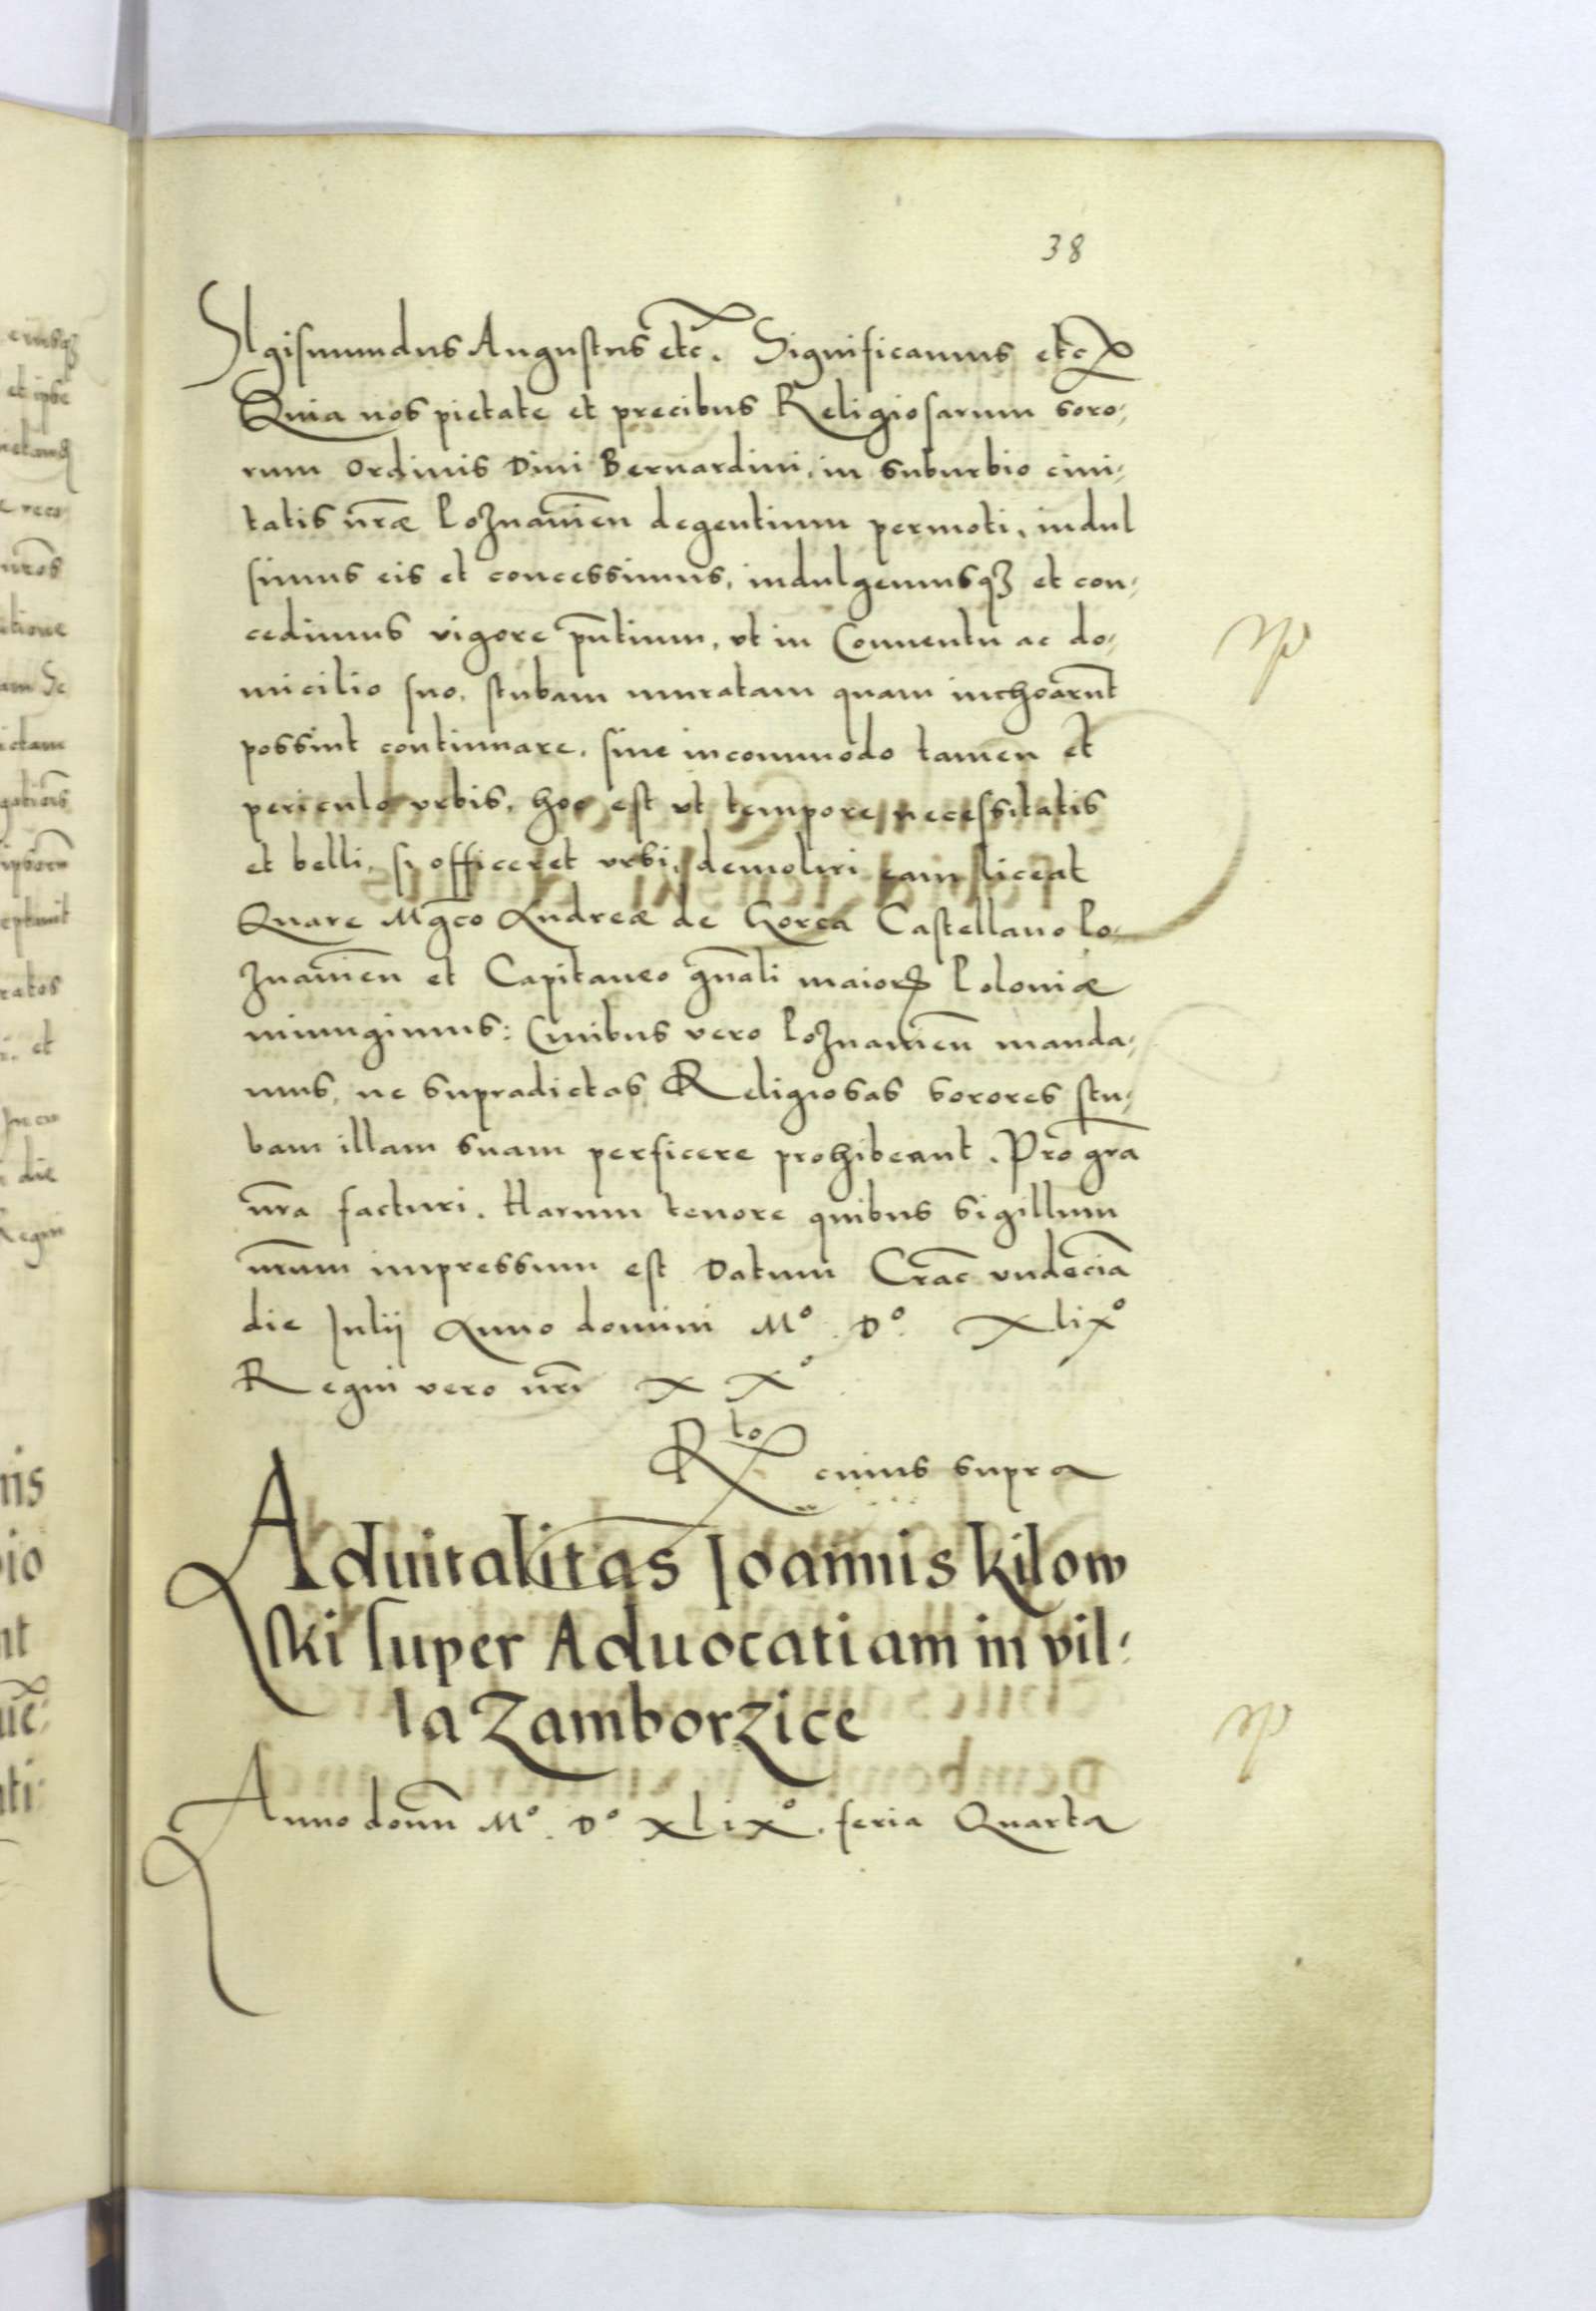 38
SIgismundus Augustus etc̃. Significamus etc
Quia nos pietate et precibus Religiosarum soro,
rum ordinis Diui Bernardini, in suburbio ciui,
tatis nr̃æ Poznanien̄ degentium permoti, indul
simus eis et concessimus, indulgemusqꝫ et con,
cedimus vigore pn̄tium, vt in Conuentu ac do,
micilio suo, stubam muratam quam inchoarūt
possint continuare, sine incommodo tamen et
periculo vrbis, hoc est vt tempore necessitatis
et belli, si officeret vrbi, demoliri eam liceat
Quare Mg̃co Andreæ de Gorca Castellano Po,
znanien̄ et Capitaneo gn̄ali maioꝝ Poloniæ
iniungimus: Ciuibus vero Poznanien̄ manda,
mus, ne supradictas Religiosas sorores stu,
bam illam suam perficere prohibeant. Pro gr̃a
nr̃a facturi. Harum tenore quibus sigillum
nr̃um impressum est Datum Crac̃ vndecīa
die Julij Anno domini Mº. Dº. Xlixº
Regni vero nr̃i XXº
Rto cuius supra
Aduitalitas Joannis kilow
ski super Aduocatiam in vil,
la Zamborzice
Anno domī Mº. Dº xlixº. feria Quarta